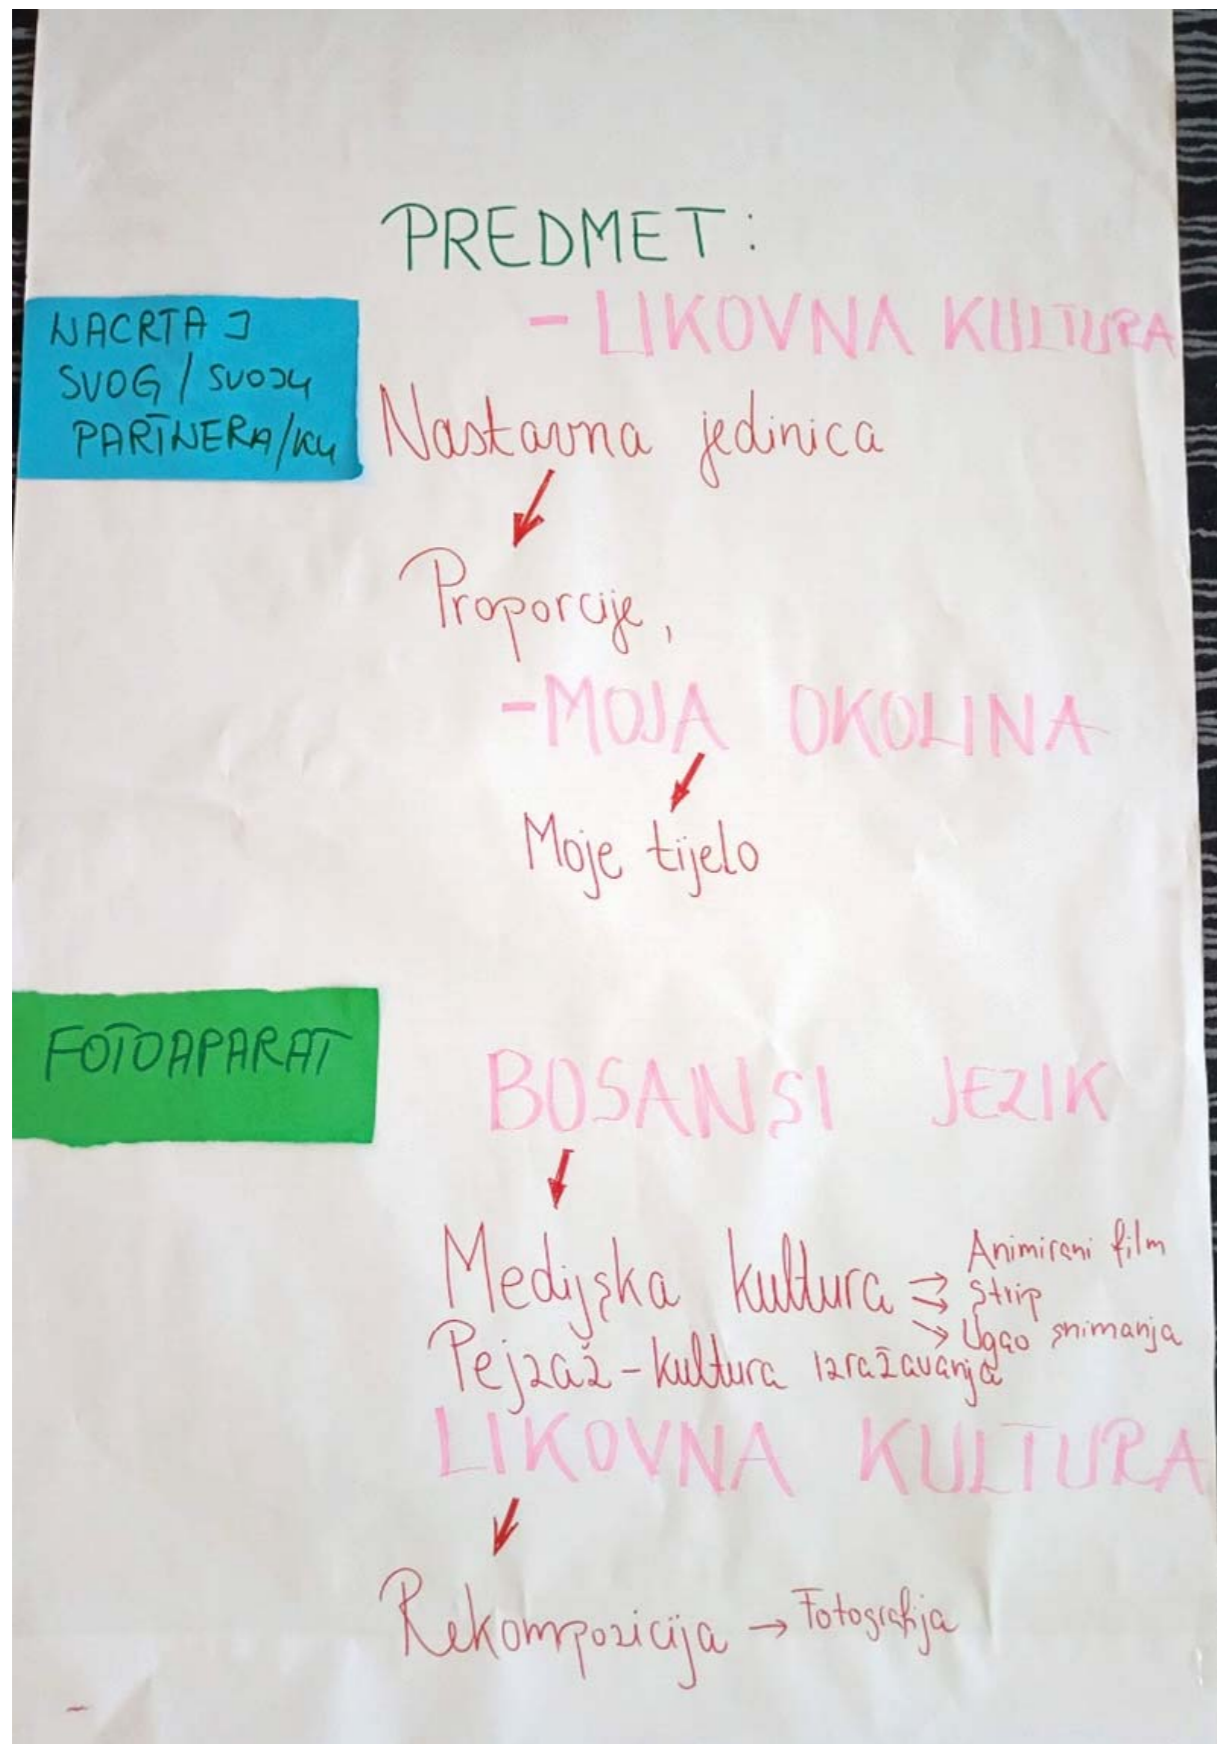 PREDMET:
- LIKOVNA KULTURA
NACRTAJ
SVOG / SVOJU
PARTNERA/KU
Nastavna jedinica
Proporcije,
- MOJA OKOLINA
Moje tijelo
FOTOAPARAT
BOSANSI JEZIK
Medijska kultura → Animirani film
→ Strip
→ Ugao snimanja
Pejzaž - kultura izražavanja
LIKOVNA KULTURA
Rekompozicija → Fotografija